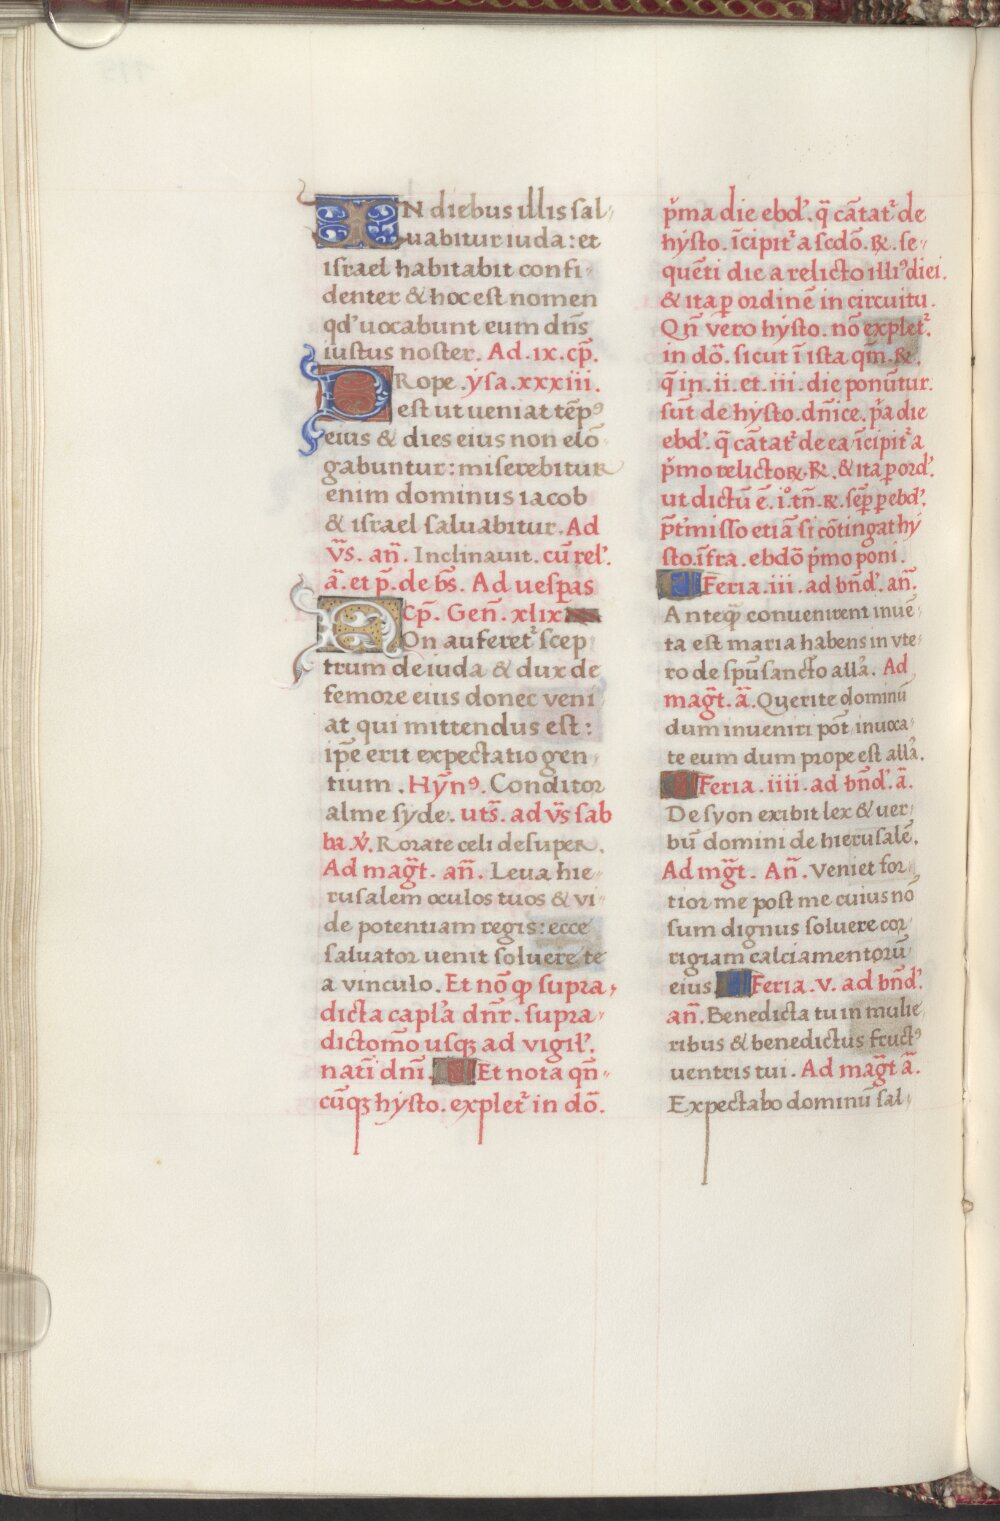 IN diebus illis sal,
uabitur iuda: et
israel habitabit confi,
denter & hoc est nomen
qd' uocabunt eum dñs
iustus noster. Ad .ix. cp̃.
PRope .ẏsa.xxxiii.
est ut ueniat tẽpꝰ
eius & dies eius non elõ
gabuntur: miserebitur
enim dominus iacob
& israel saluabitur. Ad
ṽs. añ. Inclinauit. cũ rel'.
ã. et p̃. de b̃s. Ad uesp̃as
Cp̃. Geñ. xlix
NOn auferet᷑ scep
trum de iuda & dux de
femore eius donec veni
at qui mittendus est:
ip̃e erit expectatio gen,
tium. Hẏñꝰ. Conditor
alme syde. ut s̃. ad ṽs sab
ba. ꝟ. Rorate celi desuper.
Ad mag̃t. añ. Leua hie,
rusalem oculos tuos & vi,
de potentiam regis: ecce
saluator uenit soluere te
a vinculo. Et nõ ꝙ supra,
dicta capl'a dñr. supra,
dictomõ usqꝫ ad vigil'.
nati dñi. Et nota qñ,
cũqꝫ hẏsto. explet᷑ in dõ.
p̃ma die ebd'. q̃ cãtat᷑ de
hẏsto. ĩcipit᷑ a scdõ. ℞. se,
quẽti die a relicto illiꝰ diei.
& ita ꝑ ordinẽ in circuitu.
Qñ vero hẏsto. nõ explet᷑.
in dõ. sicut ĩ ista qm̃. ℞.
q̃ in .ii. et .iii. die ponũtur.
sũt de hẏsto. dñice. p̃a die
ebd'. q̃ cãtat᷑ de ea ĩcipit᷑ a
p̃mo relictoꝝ. ℞. & ita ꝑ ord'.
ut dictũ ẽ. iº. tñ. ℞. sẽꝑ ꝑ ebd'.
p̃t̃misso etiã si cõtingat hẏ
sto. ĩfra. ebdõ p̃mo poni.
Feria .iii. ad bñd'. añ.
Anteqꝙ̃ conuenirent inuẽ,
ta est maria habens in vte,
ro de sp̃u sancto all'a. Ad
mag̃t. ã. Querite dominũ
dum inueniri põt inuoca,
te eum dum prope est all'a.
Feria .iiii. ad bñd'. ã.
De syon exibit lex & uer,
bũ domini de hierusalẽ.
Ad mg̃t. Añ. Veniet for,
tior me post me cuius nõ
sum dignus soluere cor,
rigiam calciamentorũ
eius. Feria .v. ad bñd'.
añ. Benedicta tu in mulie,
ribus & benedictus fructꝰ
uentris tui. Ad mag̃t ã.
Expectabo dominũ sal,